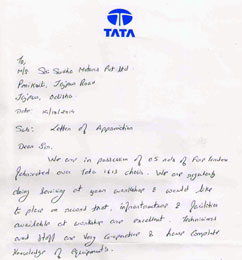 TATA
To,
M/S Sai Motors Pvt Ltd
Jajpur Road
Jajpur, Odisha
Date:
Sub:- Letter of Appreciation
Dear Sir,
We are in possession of 05 nos of Fire tenders
Fabricated over Tata 1613 chasis. We are regularly
doing servicing at your workshop & would like
to place on record that, infrastructure & facilities
available at workshop are excellent. Technicians
and staff are very co-operative & have complete
knowledge of Equipments.